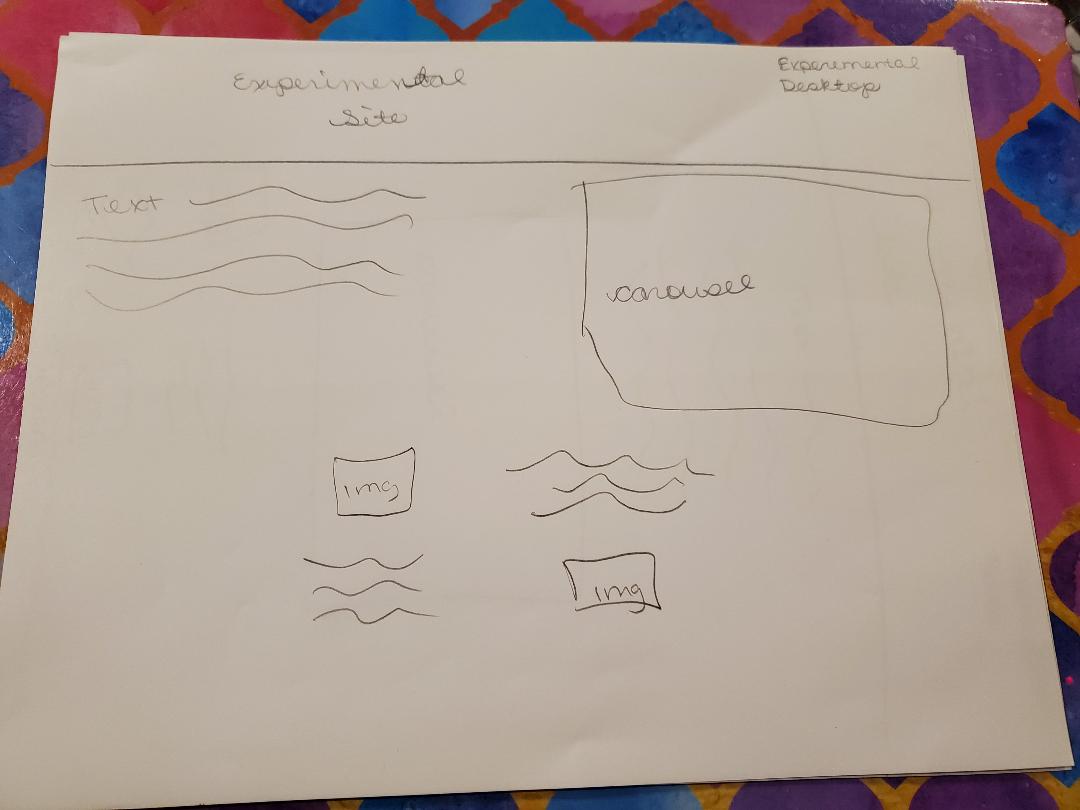 Experimental
Site
Experemental
Desktop
Text
carousel
img
img